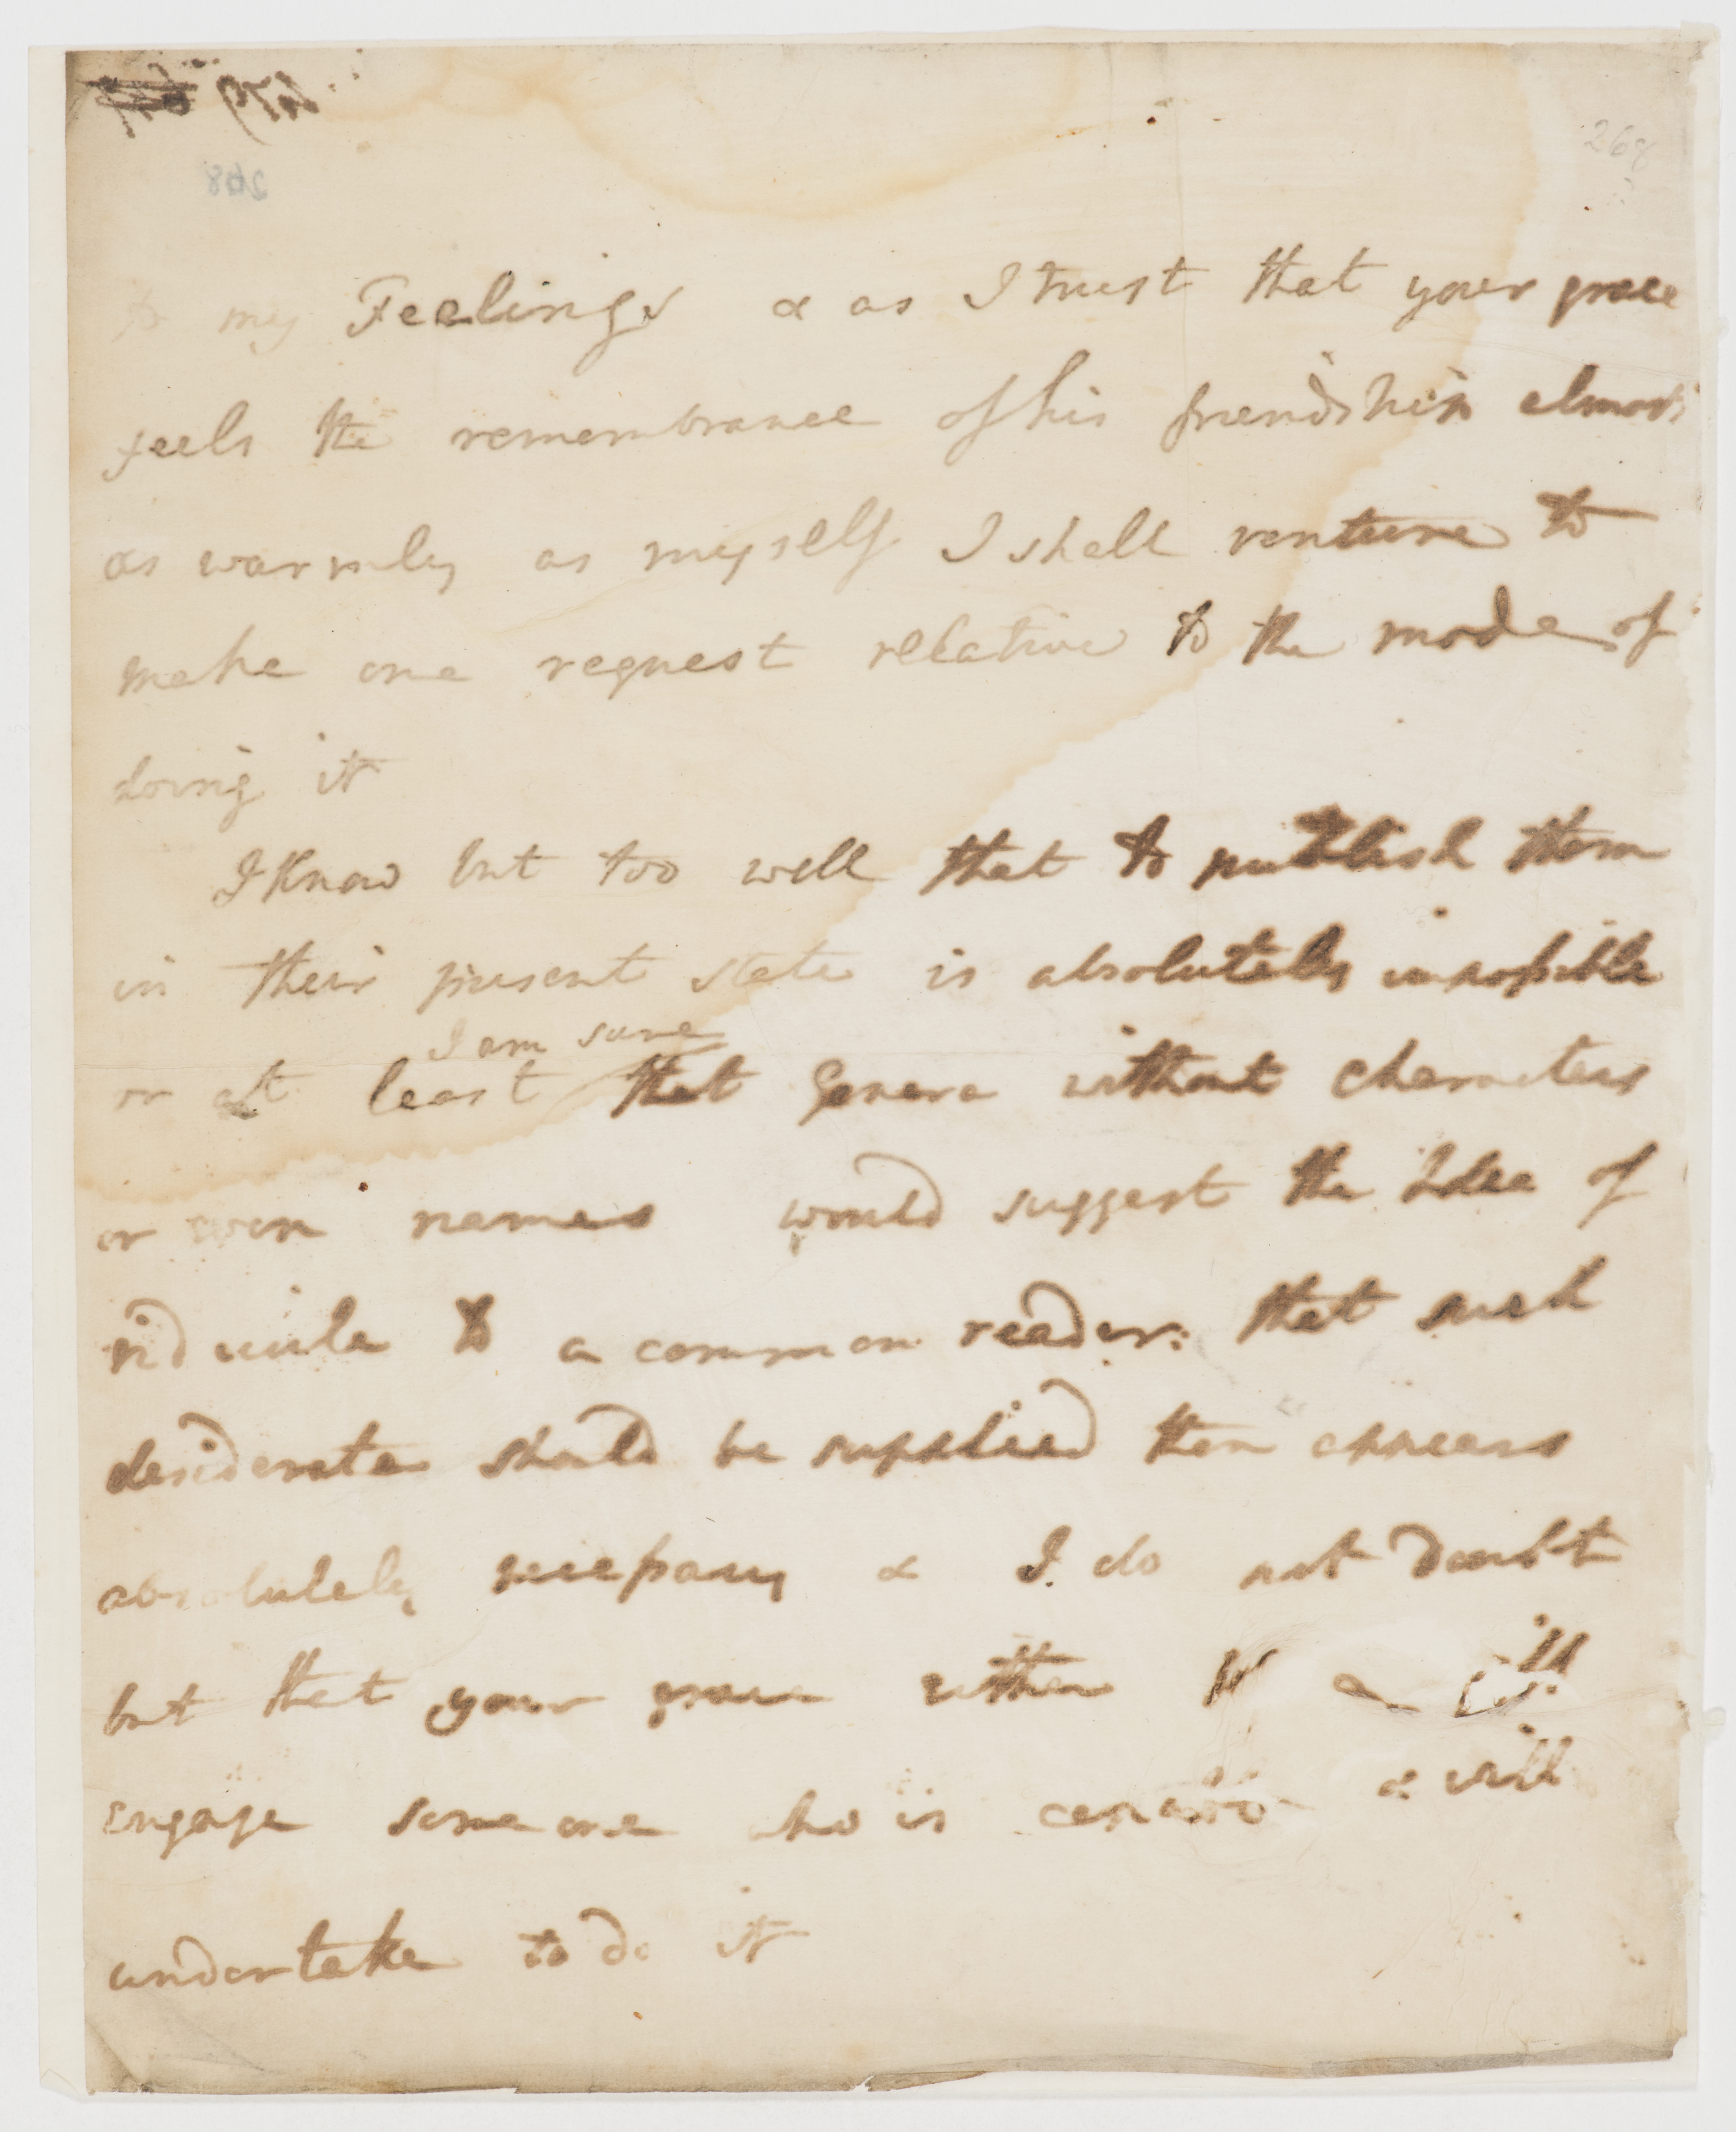 268
to my Feelings & as I trust that your grace
feels the remembrance of his friendship almost
as warmly as myself I shall venture to
make one request relative to the mode of
doing it
I Know but too well that to publish them
in their present state is absolutely impossible
I am sure
or at least that Genera without characters
or even names would suggest the Idea of
ridicule to a common reader: that such
desiderata should be supplied then appears
absolutely necessary & I do not doubt
but that your grace either
engage some one who is & will
undertake to do it